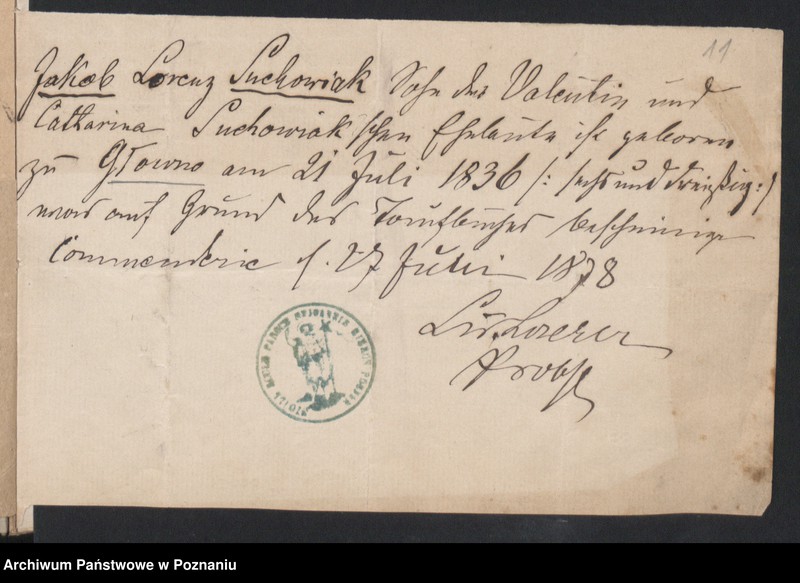 11
Jakob Lorenz Suchowiak Sohn der Valentin und
Catharina Suchowiak'schen Eheleute ist geboren
zu Głowno am 21 Juli 1836 /: sechs und dreißig :/
was auf Grund des Taufbuches bescheinige
Commenderie d. 27 Juli 1878
Probst
Archiwum Państwowe w Poznaniu